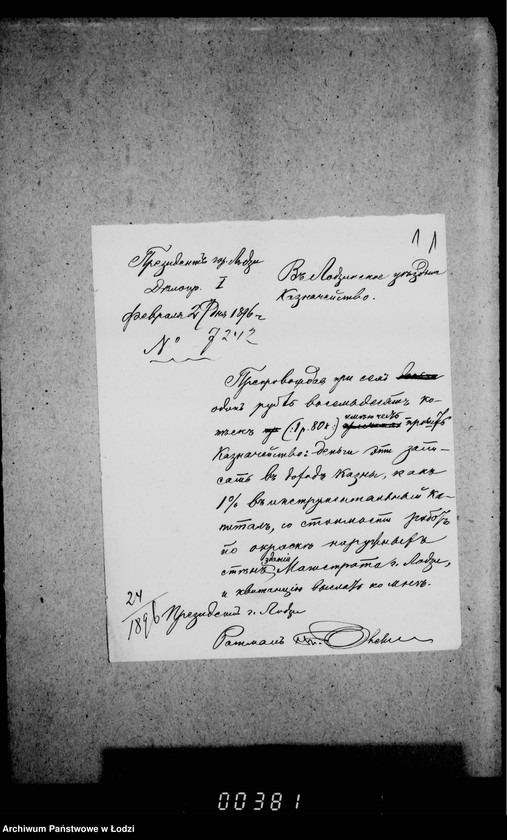 11
Президентъ гор. Лодзи
Въ Лодзинское уѣздное
Казначейство.
I
Февраля дня 1896 г.
№ 7242
Препровождая при семъ
одинъ рубль восемьдесятъ ко-
пѣекъ (1 р. 80 к.) прошу
Казначейство: деньги эти запи-
сать въ доходъ казны, какъ
1% въ инструментальный ка-
питалъ, со стоимости работъ
по окраскѣ наружныхъ
стѣнъ зданія Магистрата г. Лодзи,
и квитанцію выслать ко мнѣ.
24
1896
Президентъ г. Лодзи
Ратманъ
00381
Archiwum Państwowe w Łodzi